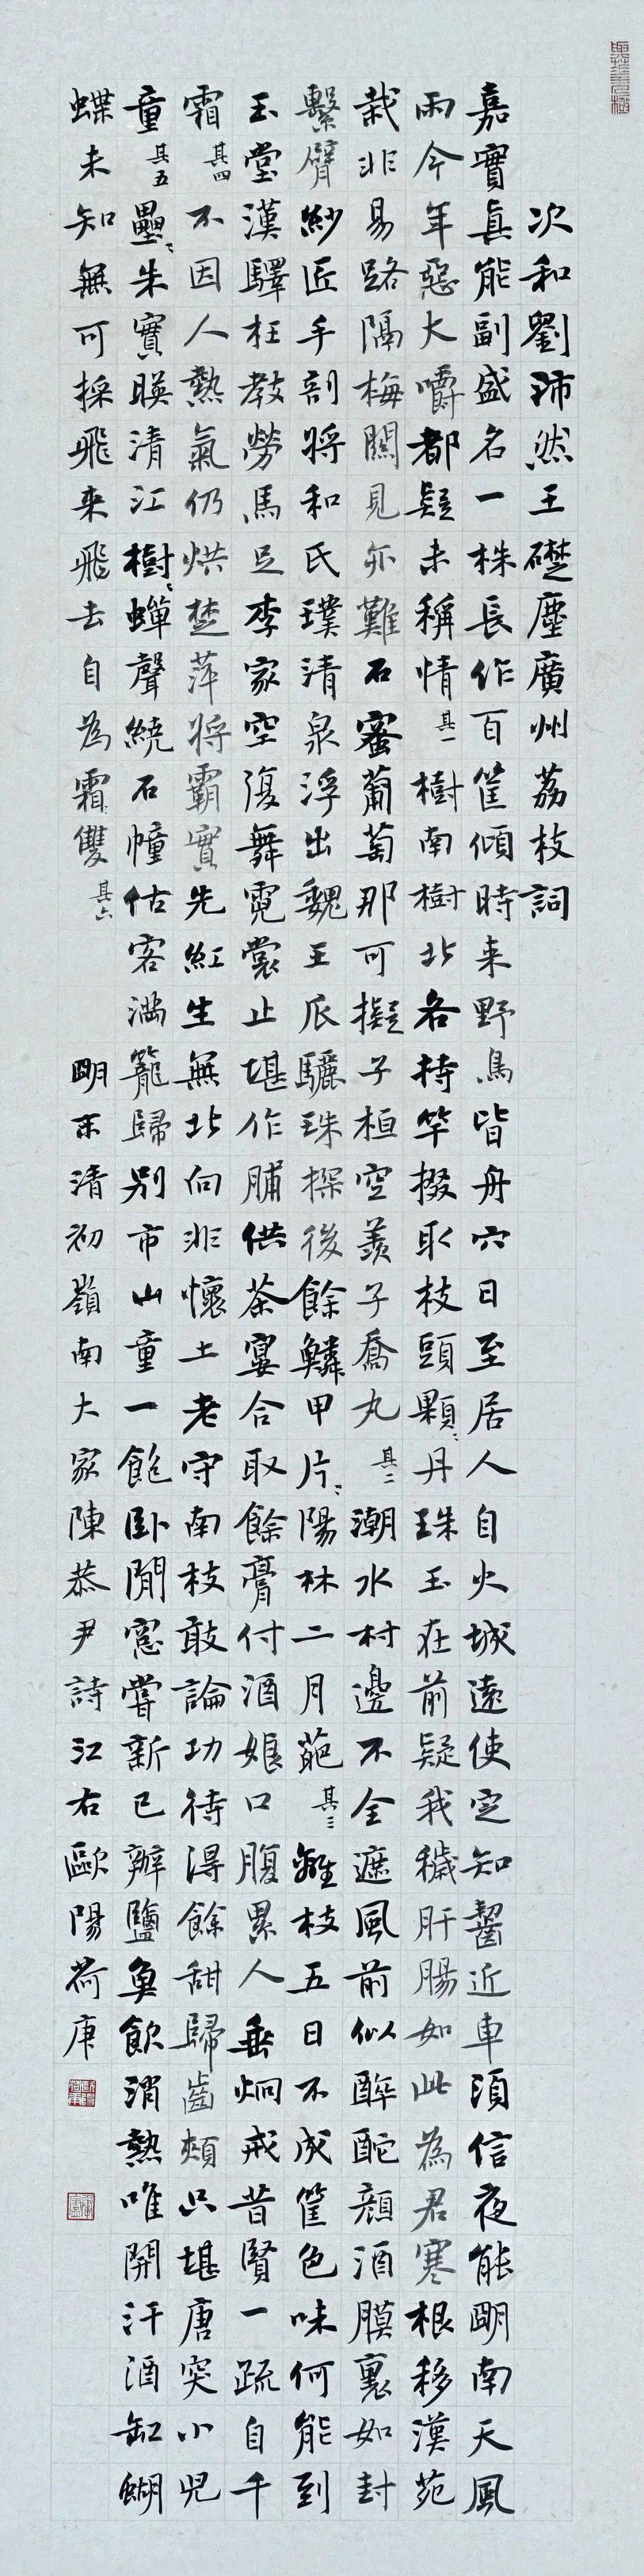 次和劉沛然王礎塵廣州荔枝詞
嘉實真能副盛名一株長作百筐傾時来野鳥皆丹穴日至居人自火城遠使定知齧近車須信夜能明南天風
雨今年惡大嚼都疑未稱情其一樹南樹北各持竿掇取枝頭顆〻丹珠玉在前疑我穢肝腸如此為君寒根移漢苑
栽非易路隔梅關見亦難石蜜葡萄那可擬子桓空羨子喬丸其二潮水村邊不全遮風前似醉酡顏酒膜裏如封
繫臂紗匠手剖將和氏璞清泉浮出魏王瓜驪珠探後餘鱗甲片〻陽林二月葩其三離枝五日不成筐色味何能到
玉堂漢驛枉教勞馬足李家空復舞霓裳止堪作脯供茶宴合取餘膏付酒娘口腹累人垂炯戒昔賢一疏自千
霜其四不因人熱氣仍烘楚萍將霸實先紅生無北向非懷土老守南枝敢論功待得餘甜歸齒頰只堪唐突小兒
童其五壘〻朱實暎清江樹〻蟬聲繞石幢估客滿籠歸別市山童一飽卧閒窻嘗新已辦鹽魚飲消熱唯開汗酒缸蝴
蝶未知無可採飛来飛去自為霜雙其六
明末清初嶺南大家陳恭尹詩江右歐陽荷庚